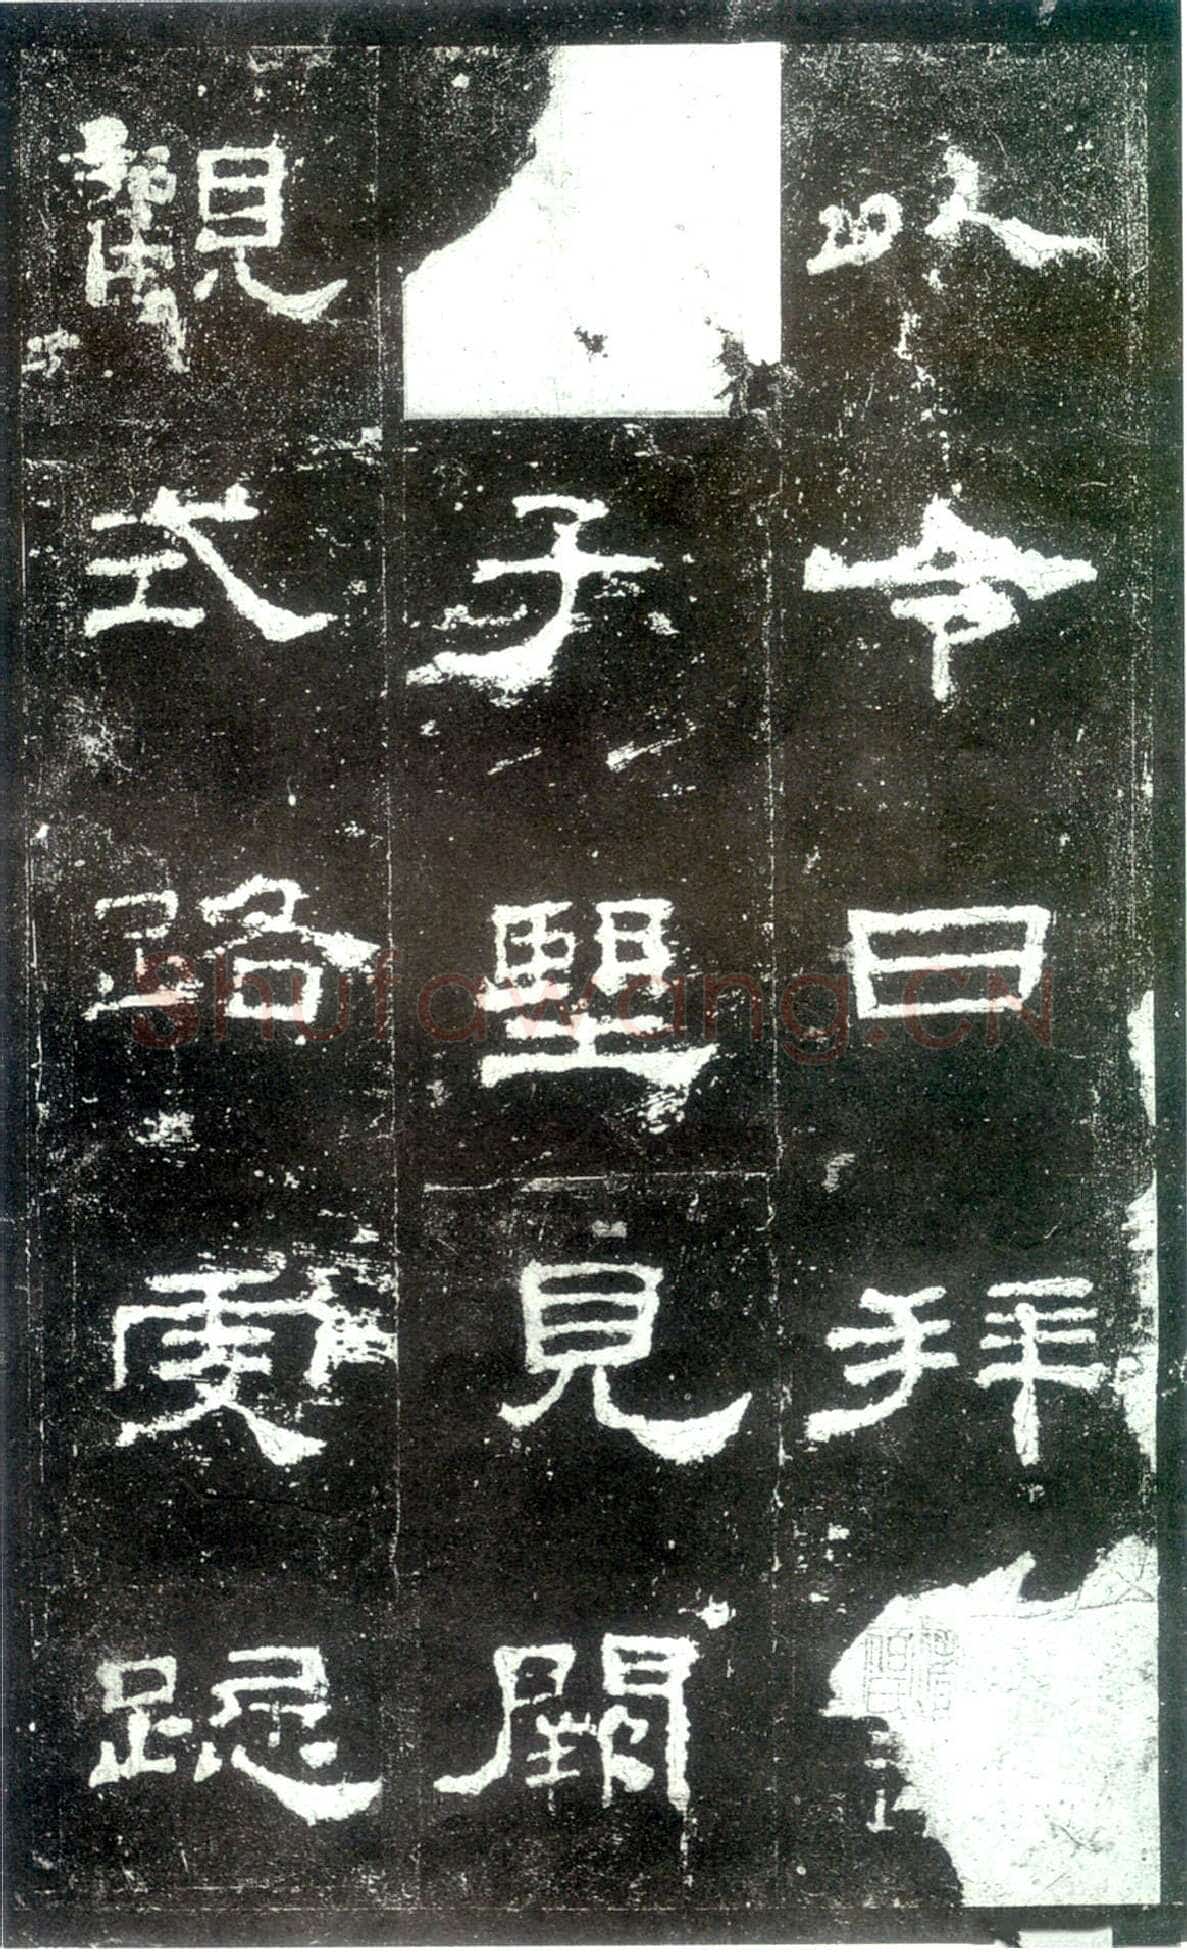 以令日拜
子望見闕
觀式路虔跽
Shufawang.CN